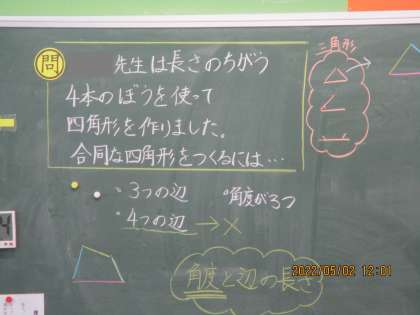 問
先生は長さのちがう
4本のぼうを使って
四角形を作りました。
合同な四角形をつくるには…
三角形
・3つの辺
・角度が3つ
・4つの辺→×
角度と辺の長さ
2022/05/02 12:01
4